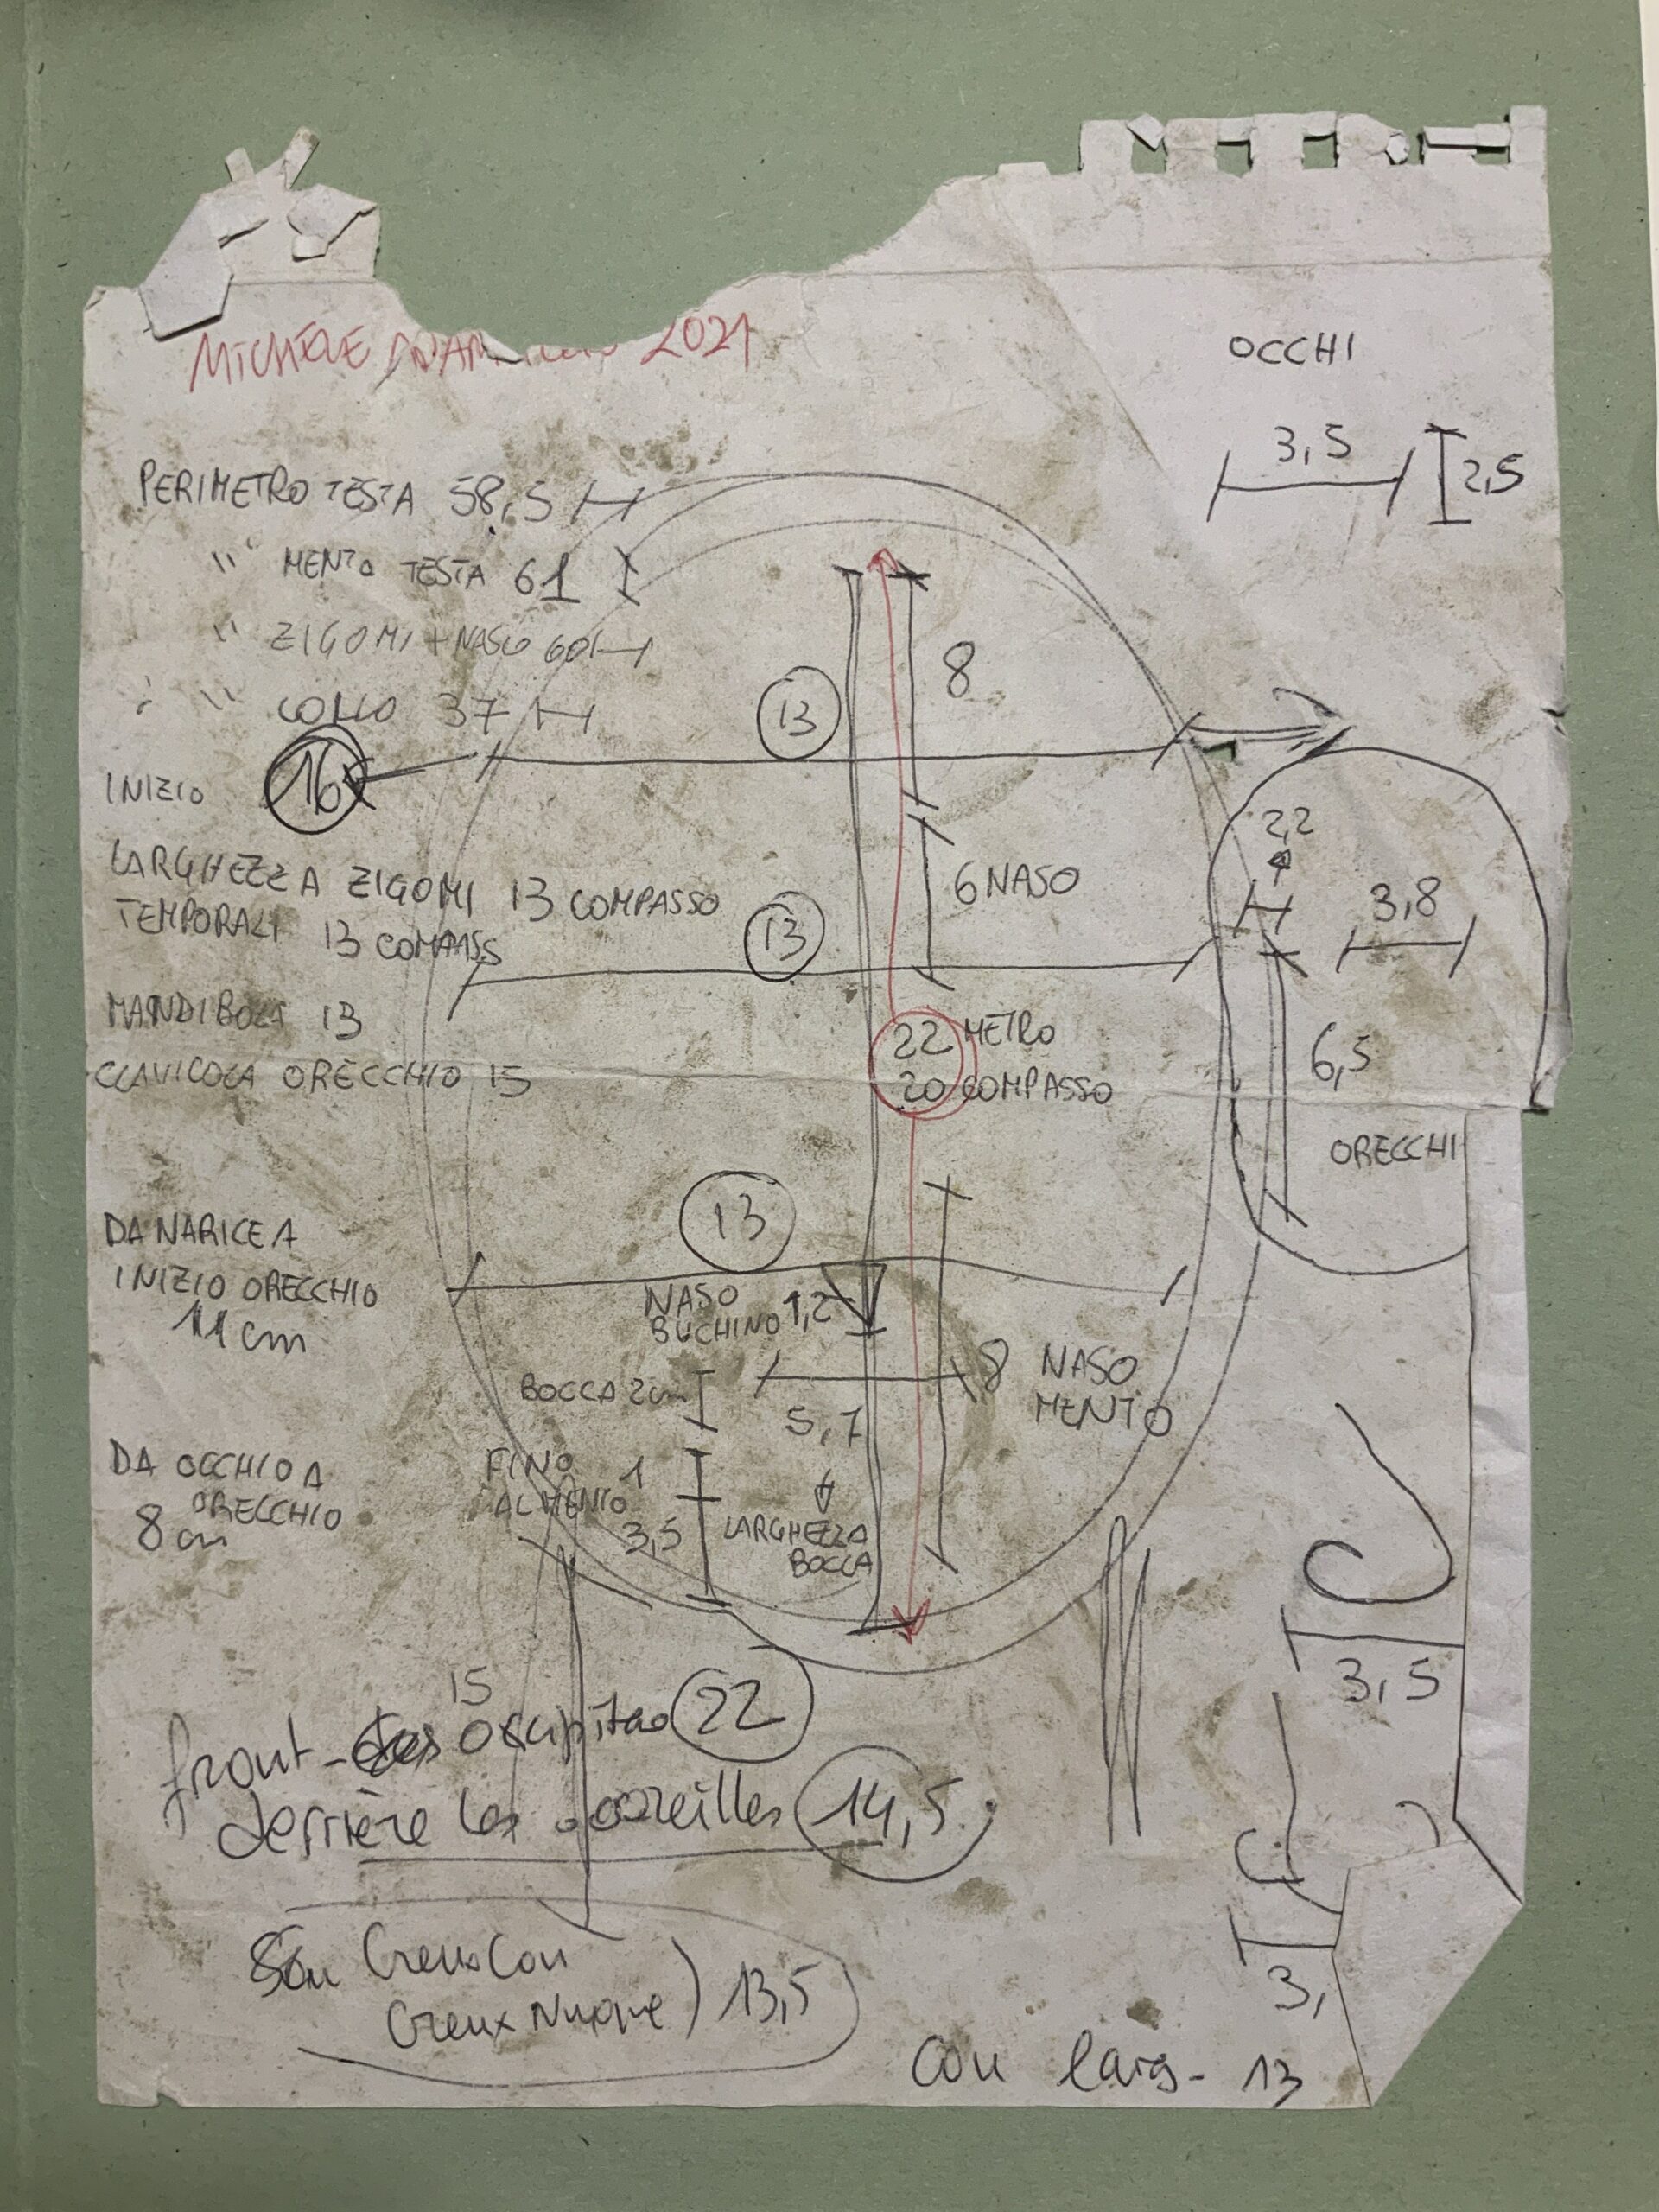 MICHELE 2021
OCCHI
3,5
2,5
PERIMETRO TESTA 58,5
" MENTO TESTA 61
" ZIGOMI + NASO 60
" COLLO 37
8
13
INIZIO 16
2,2
3,8
LARGHEZZA ZIGOMI 13 COMPASSO
TEMPORALI 13 COMPASS
13
6 NASO
MANDIBOLA 13
CLAVICOLA ORECCHIO 15
22 METRO
20 COMPASSO
6,5
ORECCHI
13
DA NARICE A
INIZIO ORECCHIO
11 cm
NASO
BUCHINO 1,2
BOCCA 2cm
5,7
8 NASO
MENTO
DA OCCHIO A
ORECCHIO
8 cm
FINO
AL MENTO
1
3,5
LARGHEZZA
BOCCA
3,5
15
front- occipitao 22
derrière les oreilles 14,5
Creux Cou
Creux Nuque) 13,5
3,
Cou larg- 13